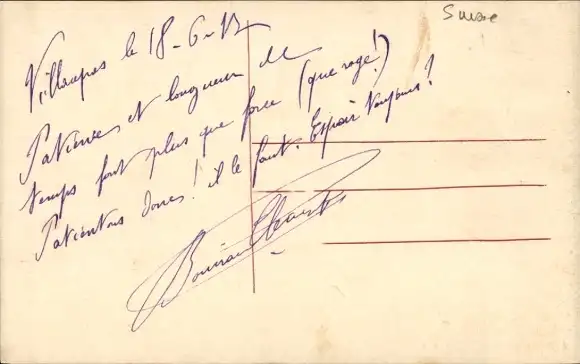 Suisse
le 18-6-12
Patience et longueur de
temps font plus que force (que rage!)
Patientons donc! il le faut. Espoir toujours!